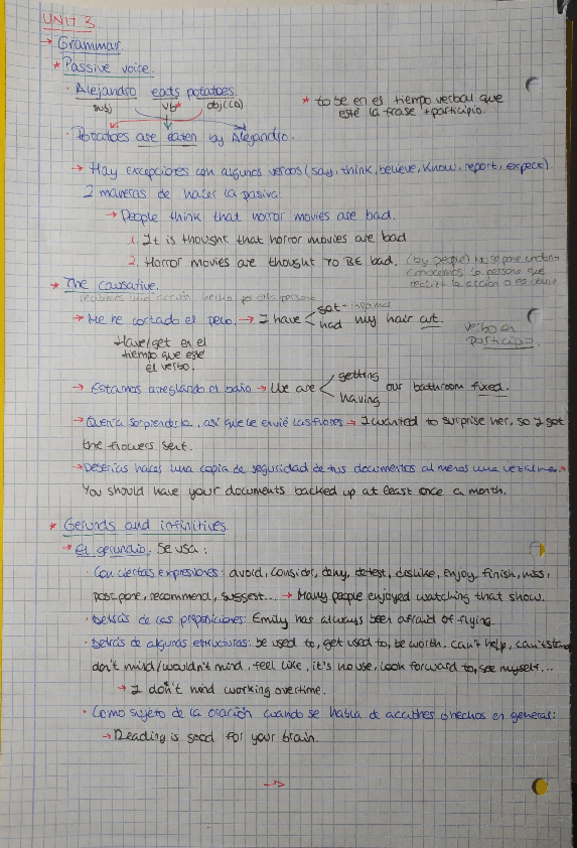 UNIT 3
→ Grammar.
* Passive voice.
· Alejandro eats potatoes.
subj vb* obj(CD)
* to be en el tiempo verbal que
esté la frase + participio.
· Potatoes are eaten by Alejandro.
→ Hay excepciones con algunos verbos (say, think, believe, know, report, expect)
2 maneras de hacer la pasiva.
→ People think that horror movies are bad.
1. It is thought that horror movies are bad
2. Horror movies are thought TO BE bad. (by people) no se pone cuando
conocemos la persona que
realiza la acción o es obvio
* The causative.
→ Me he cortado el pelo. → I have got - informal
had my hair cut.
verbo en
participio.
Have/get en el
tiempo que esté
el verbo.
→ Estamos arreglando el baño → We are getting
having our bathroom fixed.
→ Quería sorprenderla, así que le envié las flores → I wanted to surprise her, so I got
the flowers sent.
→ Deberías hacer una copia de seguridad de tus documentos al menos una vez al mes →
You should have your documents backed up at least once a month.
* Gerunds and infinitives.
→ El gerundio. Se usa:
· Con ciertas expresiones: avoid, consider, deny, detest, dislike, enjoy, finish, miss,
postpone, recommend, suggest... → Many people enjoyed watching that show.
· Detrás de las preposiciones: Emily has always been afraid of flying.
· Detrás de algunas estructuras: be used to, get used to, be worth, can't help, can't stand
don't mind/wouldn't mind, feel like, it's no use, look forward to, see myself...
→ I don't mind working overtime.
· Como sujeto de la oración cuando se habla de acciones o hechos en general:
→ Reading is good for your brain.
→